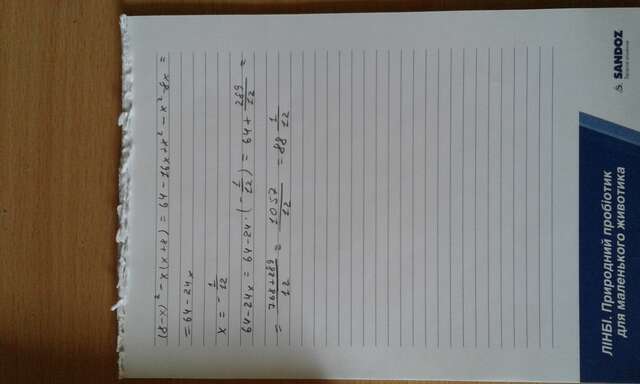 (8-x)² - x(x+8) = 64 - 16x + x² - x² - 8x =
= 64 - 24x
x = - 1/12
64 - 24x = 64 - 24 · (- 1/12) = 64 + 289/12 =
= 768+289/12 = 1057/12 = 88 1/12
ЛІНБІ. Природний пробіотик
для маленького животика
SANDOZ